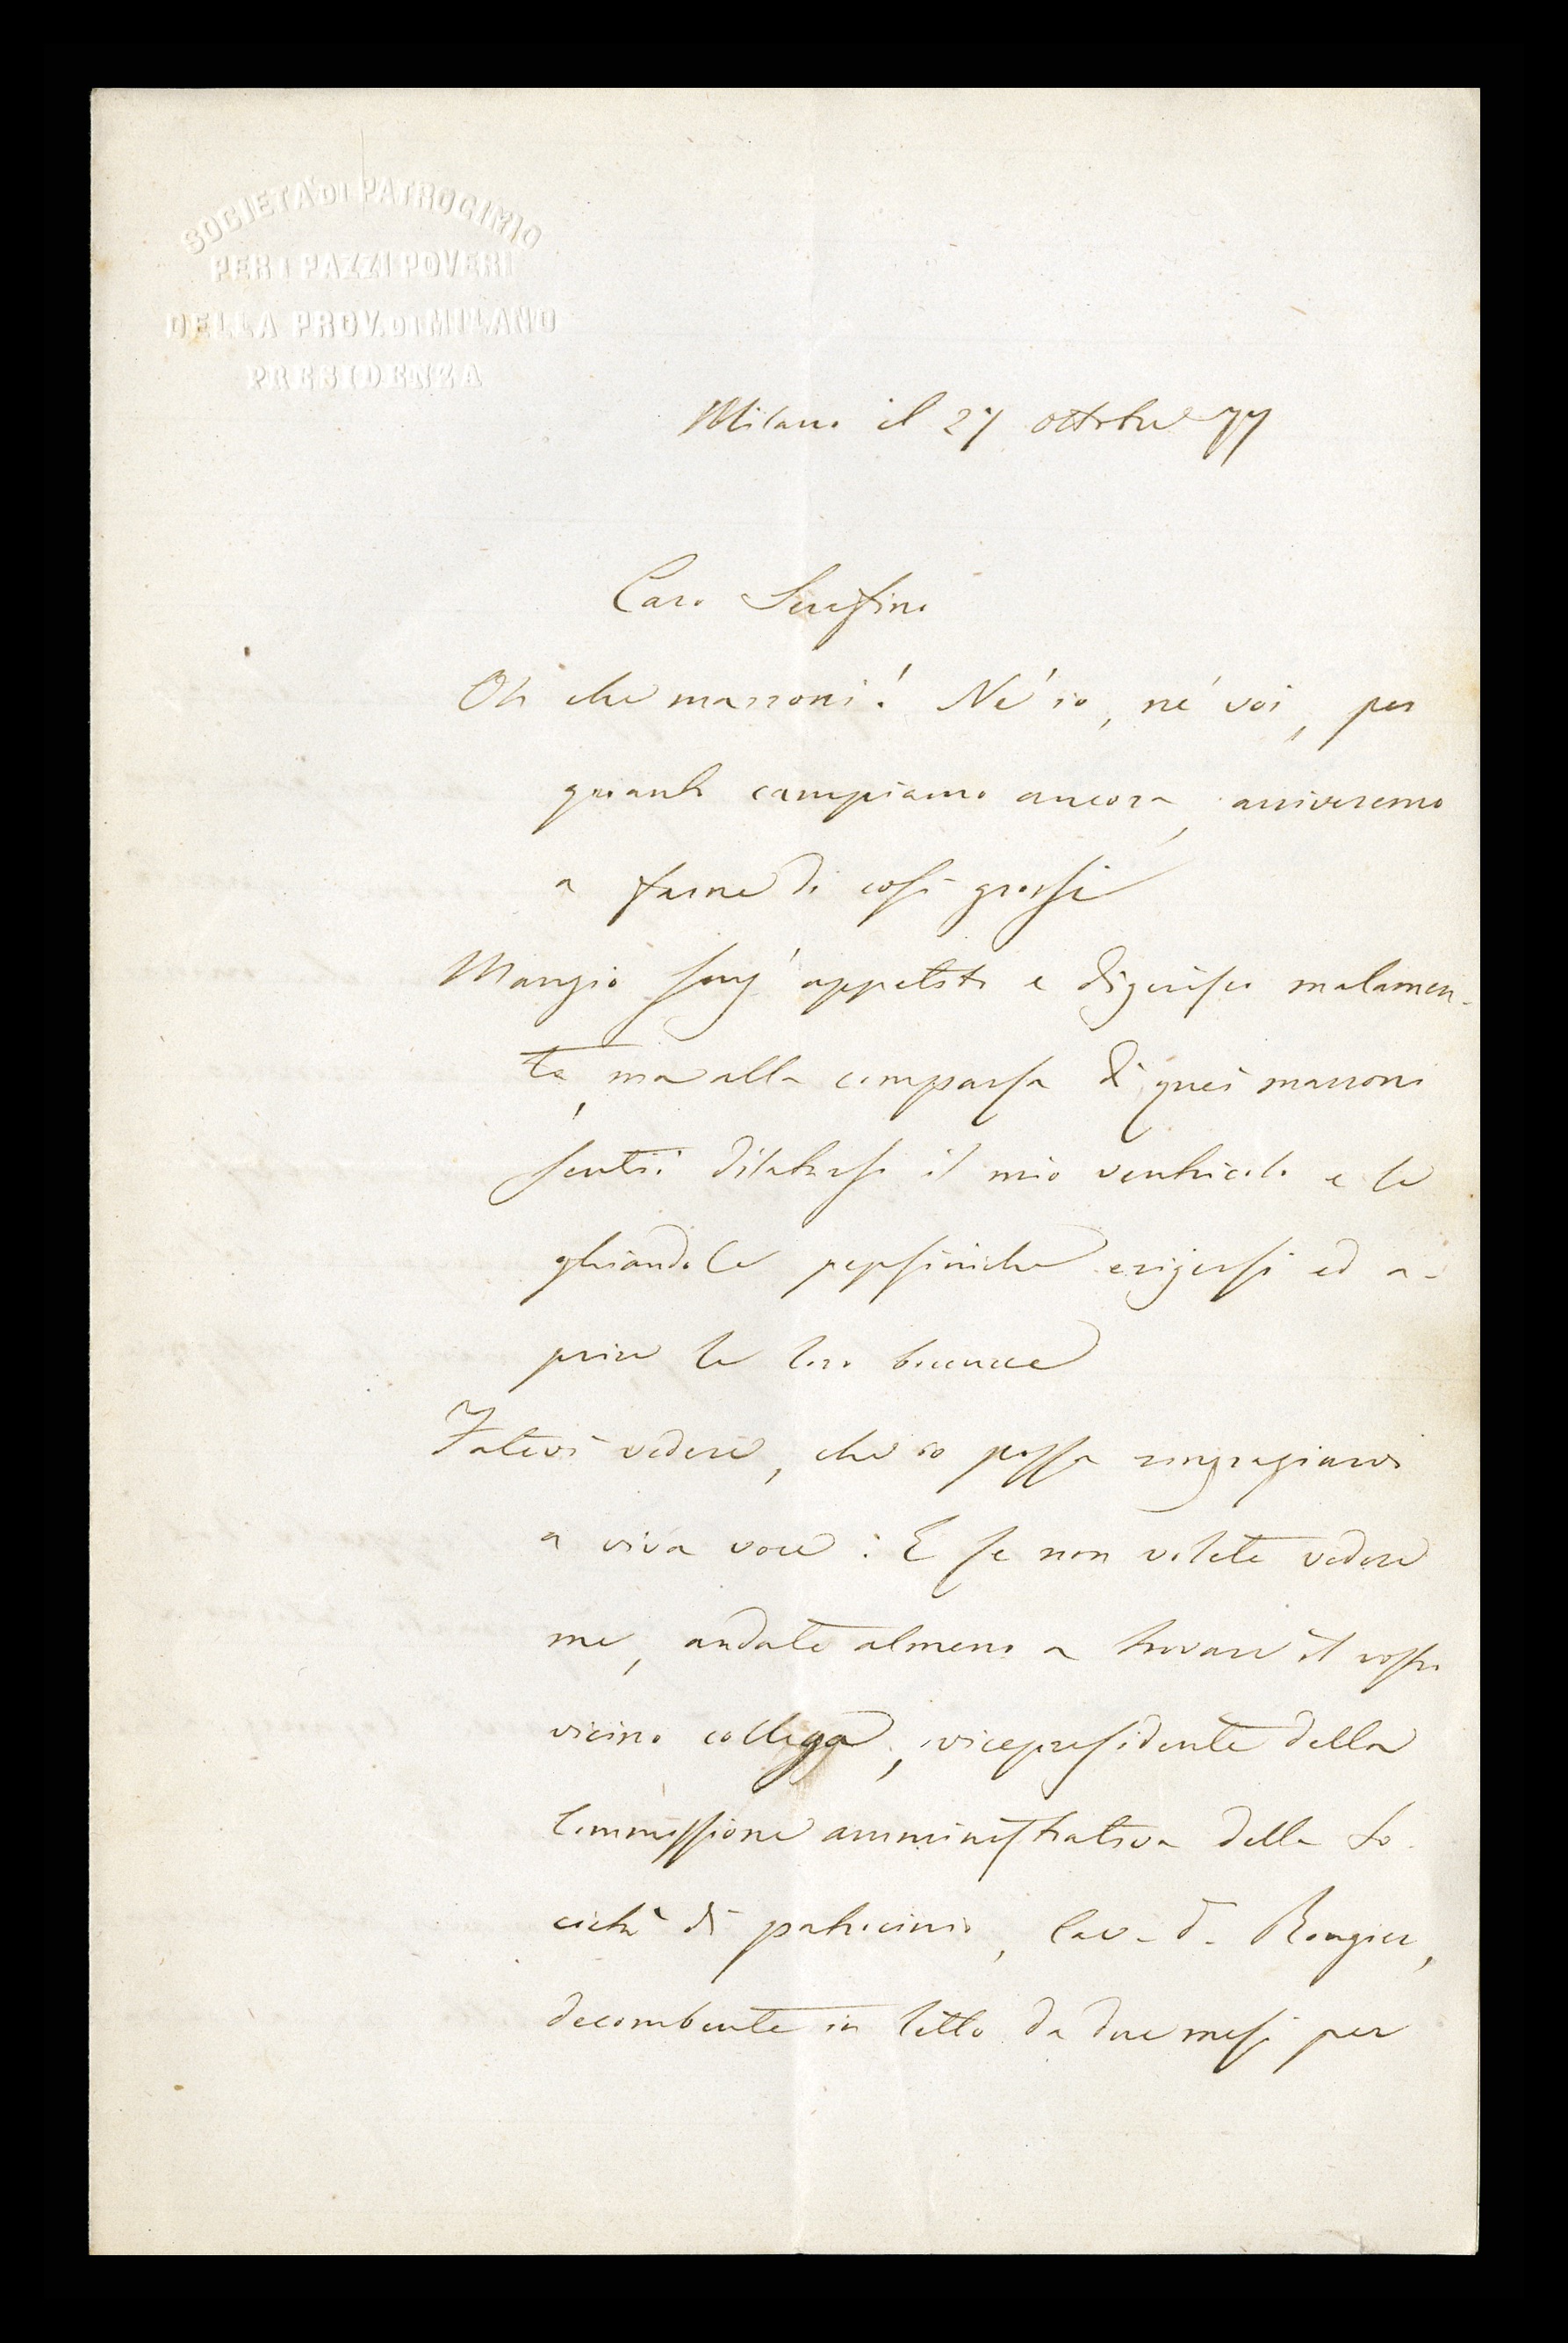 SOCIETÀ DI PATROCINIO
PER I PAZZI POVERI
DELLA PROV. DI MILANO
PRESIDENZA
Milano il 27 ottobre 77
Caro Serafino
Oh che marroni! Né io, né voi, per
quanto campiamo ancora, arriveremo
a farne di così grossi
Mangio senz' appetito e digerisco malamen-
te, ma alla comparsa di quei marroni
sentii dilatarsi il mio ventricolo e le
ghiandole pepsiniche erigersi ed a-
prire le loro boccucce
Fatevi vedere, che io possa ringraziarvi
a viva voce: E se non volete vedere
me, andate almeno a trovare il vostro
vicino collega, vicepresidente della
Commissione amministrativa della So-
cietà di patrocinio, Cav. d.
decombente in letto da due mesi per